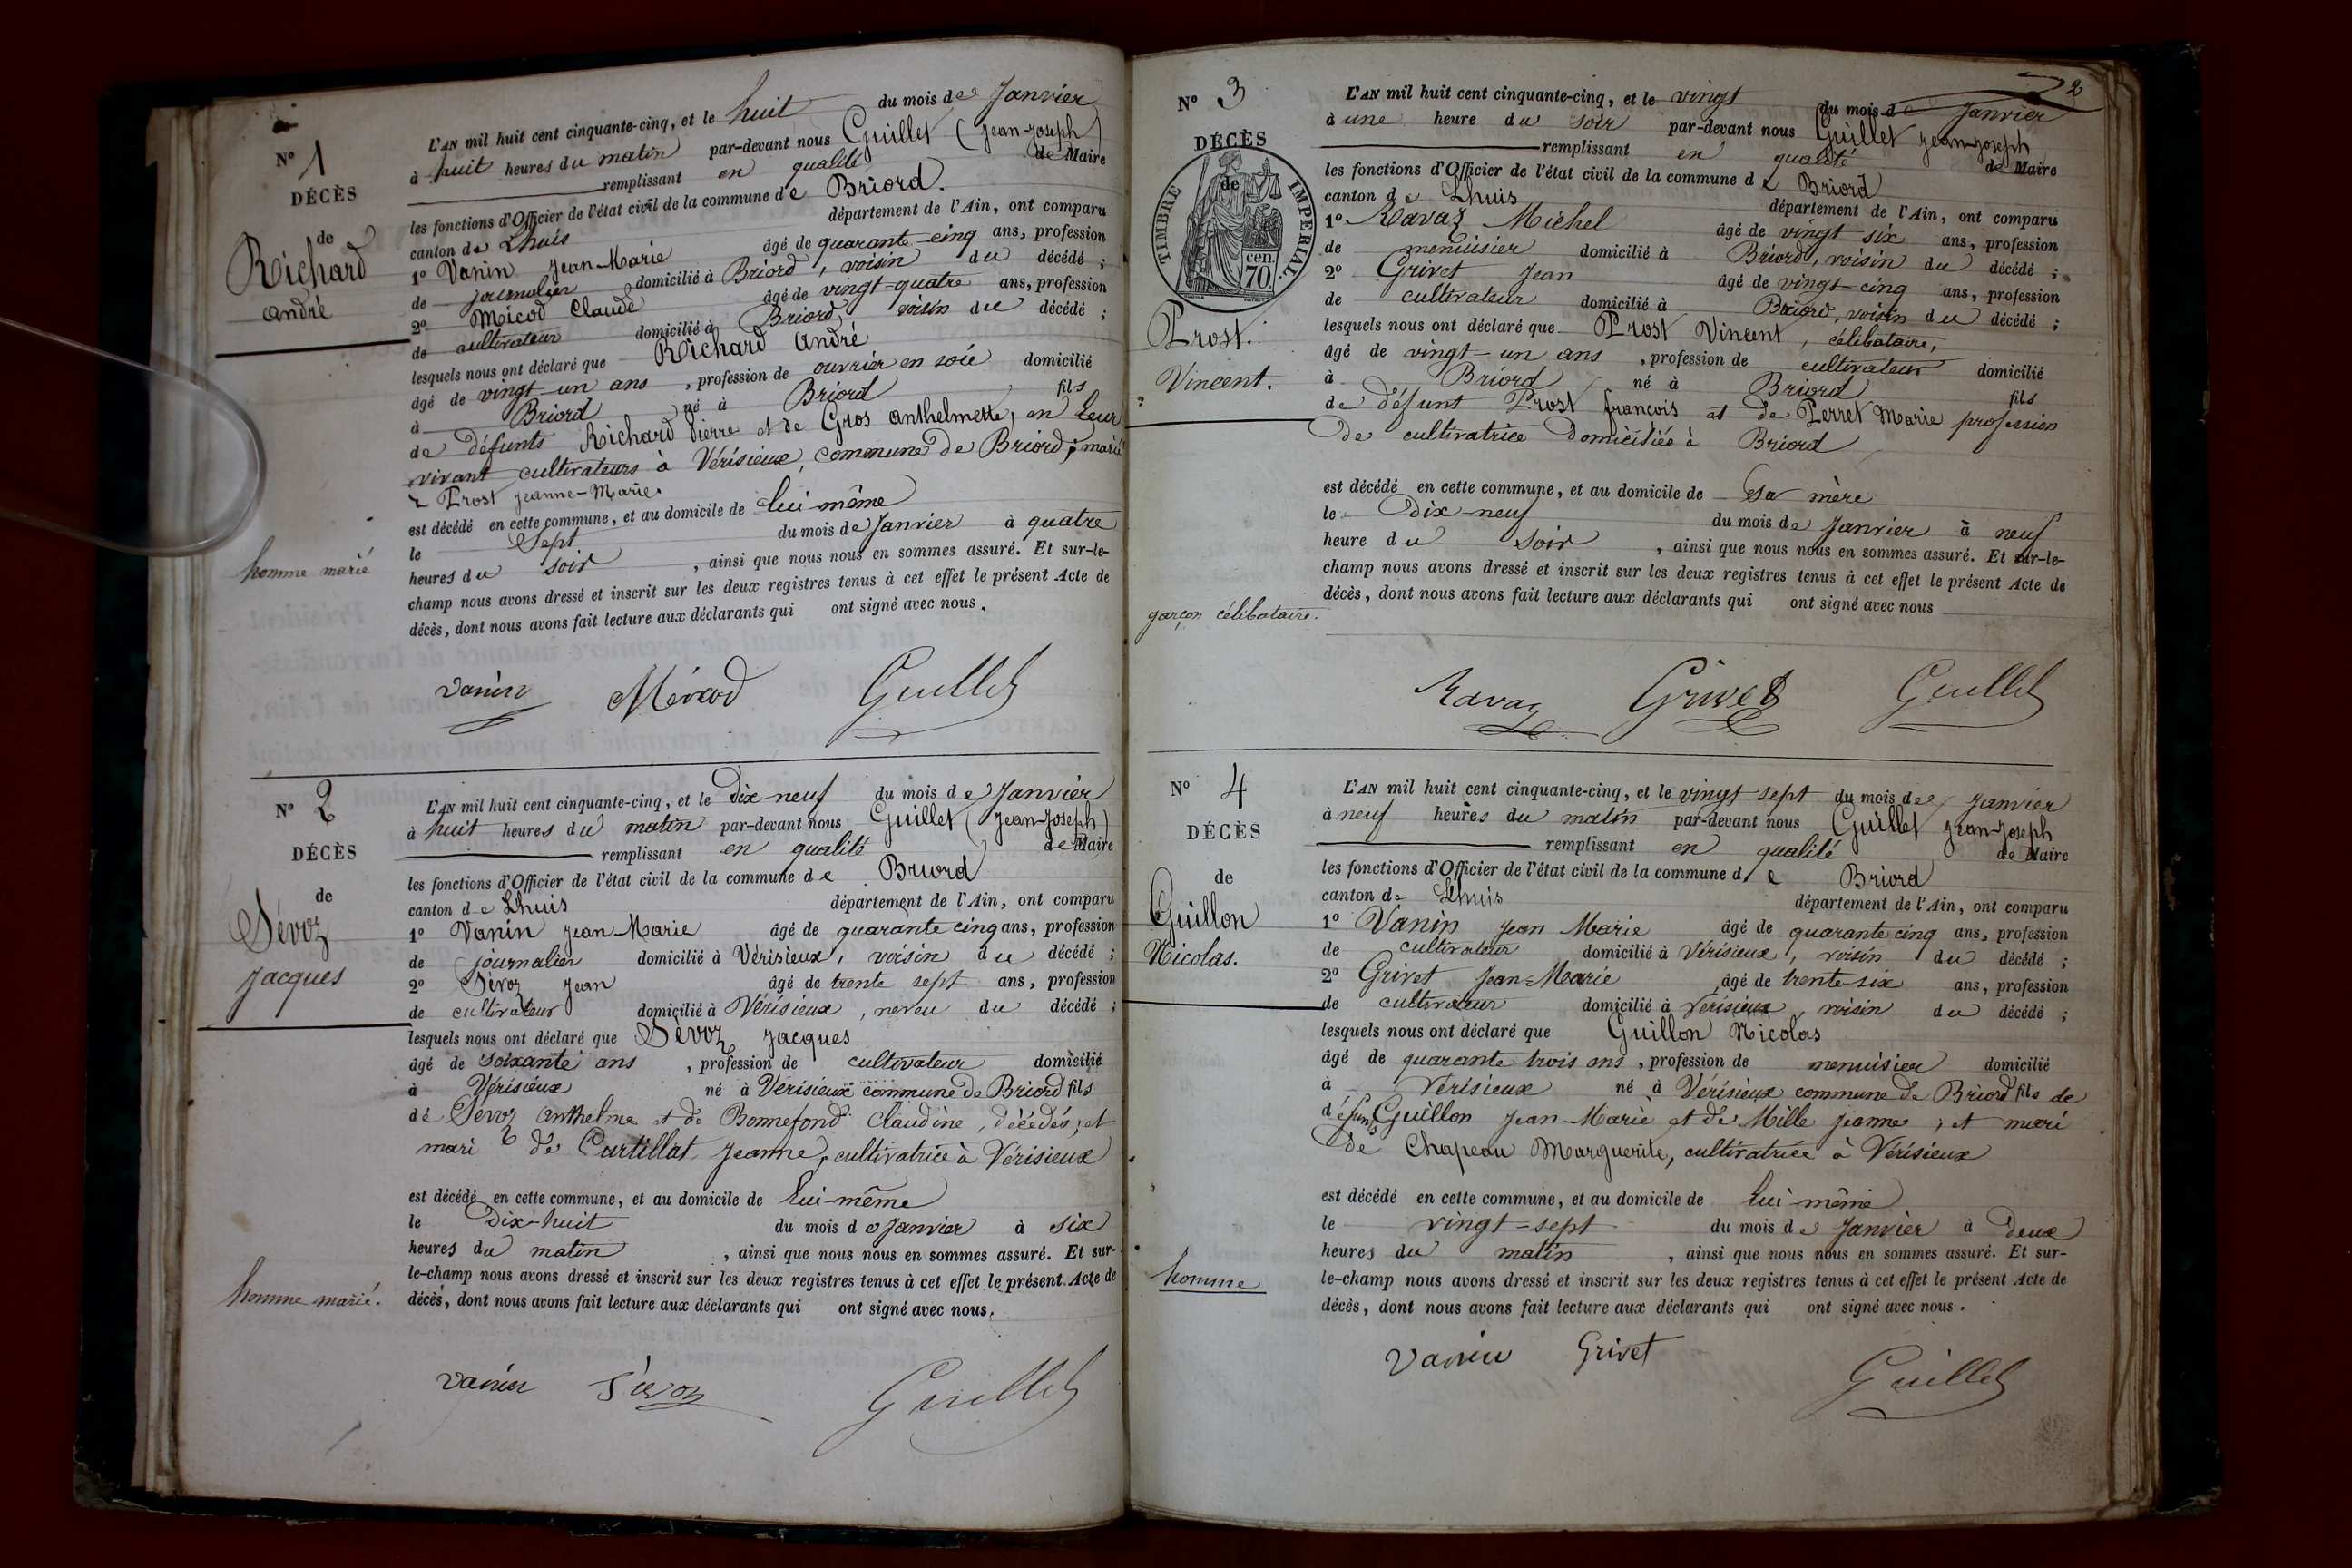 N° 1
DÉCÈS
de
Richard
André
homme marié
L'AN mil huit cent cinquante-cinq, et le huit du mois de Janvier
à huit heures du matin par-devant nous Guillet (Jean-Joseph)
remplissant en qualité de Maire
les fonctions d'Officier de l'état civil de la commune de Briord.
canton de Lhuis département de l'Ain, ont comparu
1° Vanin Jean-Marie âgé de quarante-cinq ans, profession
de journalier domicilié à Briord, voisin du décédé ;
2° Micod Claude âgé de vingt-quatre ans, profession
de cultivateur domicilié à Briord, voisin du décédé ;
lesquels nous ont déclaré que Richard André
âgé de vingt-un ans, profession de ouvrier en soie domicilié
à Briord né à Briord fils
de défunts Richard Pierre et de Gros Anthelmette, en leur
vivant cultivateurs à Vérisieux, commune de Briord ; marié
à Prost Jeanne-Marie.
est décédé en cette commune, et au domicile de lui-même
le Sept du mois de Janvier à quatre
heures du soir, ainsi que nous nous en sommes assuré. Et sur-le-
champ nous avons dressé et inscrit sur les deux registres tenus à cet effet le présent Acte de
décès, dont nous avons fait lecture aux déclarants qui ont signé avec nous.
vanin Méricod Guillet
N° 2
DÉCÈS
de
Sévoz
Jacques
homme marié.
L'AN mil huit cent cinquante-cinq, et le Dix-neuf du mois de Janvier
à huit heures du matin par-devant nous Guillet (Jean-Joseph)
remplissant en qualité de Maire
les fonctions d'Officier de l'état civil de la commune de Briord
canton de Lhuis département de l'Ain, ont comparu
1° Vanin Jean-Marie âgé de quarante cinq ans, profession
de journalier domicilié à Vérisieux, voisin du décédé ;
2° Sévoz Jean âgé de trente sept ans, profession
de cultivateur domicilié à Vérisieux, neveu du décédé ;
lesquels nous ont déclaré que Sévoz Jacques
âgé de soixante ans, profession de cultivateur domicilié
à Vérisieux né à Vérisieux commune de Briord fils
de Sévoz Anthelme et de Bonnefond Claudine, décédés, et
mari de Curtillat Jeanne, cultivatrice à Vérisieux
est décédé en cette commune, et au domicile de lui-même
le Dix-huit du mois de Janvier à six
heures du matin, ainsi que nous nous en sommes assuré. Et sur-
le-champ nous avons dressé et inscrit sur les deux registres tenus à cet effet le présent Acte de
décès, dont nous avons fait lecture aux déclarants qui ont signé avec nous.
vanin Sévoz Guillet
2
N° 3
DÉCÈS
de
TIMBRE IMPERIAL
70 cen.
Prost.
Vincent.
garçon célibataire.
L'AN mil huit cent cinquante-cinq, et le vingt du mois de Janvier
à une heure du soir par-devant nous Guillet Jean-Joseph
remplissant en qualité de Maire
les fonctions d'Officier de l'état civil de la commune de Briord
canton de Lhuis département de l'Ain, ont comparu
1° Ravaz Michel âgé de vingt six ans, profession
de menuisier domicilié à Briord, voisin du décédé ;
2° Grivet Jean âgé de vingt-cinq ans, profession
de cultivateur domicilié à Briord, voisin du décédé ;
lesquels nous ont déclaré que Prost Vincent, célibataire,
âgé de vingt-un ans, profession de cultivateur domicilié
à Briord né à Briord fils
de défunt Prost françois et de Perret Marie profession
de cultivatrice domiciliée à Briord
est décédé en cette commune, et au domicile de sa mère
le Dix-neuf du mois de Janvier à neuf
heure du soir, ainsi que nous nous en sommes assuré. Et sur-le-
champ nous avons dressé et inscrit sur les deux registres tenus à cet effet le présent Acte de
décès, dont nous avons fait lecture aux déclarants qui ont signé avec nous
Ravaz Grivet Guillet
N° 4
DÉCÈS
de
Guillon
Nicolas.
homme
L'AN mil huit cent cinquante-cinq, et le vingt sept du mois de Janvier
à neuf heures du matin par-devant nous Guillet Jean-Joseph
remplissant en qualité de Maire
les fonctions d'Officier de l'état civil de la commune de Briord
canton de Lhuis département de l'Ain, ont comparu
1° Vanin Jean Marie âgé de quarante cinq ans, profession
de cultivateur domicilié à Vérisieux, voisin du décédé ;
2° Grivet Jean-Marie âgé de trente six ans, profession
de cultivateur domicilié à Vérisieux, voisin du décédé ;
lesquels nous ont déclaré que Guillon Nicolas
âgé de quarante trois ans, profession de menuisier domicilié
à Vérisieux né à Vérisieux commune de Briord fils de
défunts Guillon Jean-Marie et de Mille Jeanne ; et mari
de Chapeau Marguerite, cultivatrice à Vérisieux
est décédé en cette commune, et au domicile de lui-même
le vingt-sept du mois de Janvier à Deux
heures du matin, ainsi que nous nous en sommes assuré. Et sur-
le-champ nous avons dressé et inscrit sur les deux registres tenus à cet effet le présent Acte de
décès, dont nous avons fait lecture aux déclarants qui ont signé avec nous.
Vanin Grivet Guillet